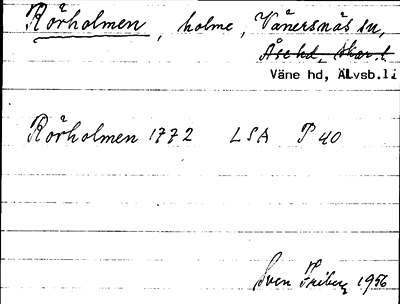 Rörholmen, holme, Vänersnäs sn,
Åse hd, Skar. l.
Väne hd, Älvsb.li
Rörholmen 1772 LSA P 40
Sven Friberg 1956